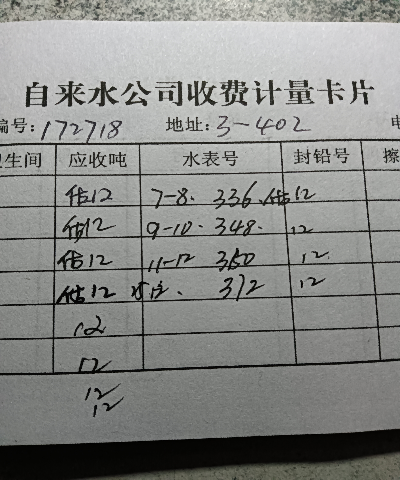 自来水公司收费计量卡片
编号:172718 地址:3-402 电
卫生间 应收吨 水表号 封铅号 擦
估12 7-8. 336. 估12
估12 9-10. 348. 12
估12 11-12 360 12.
估12 372 12
12
12
12
12